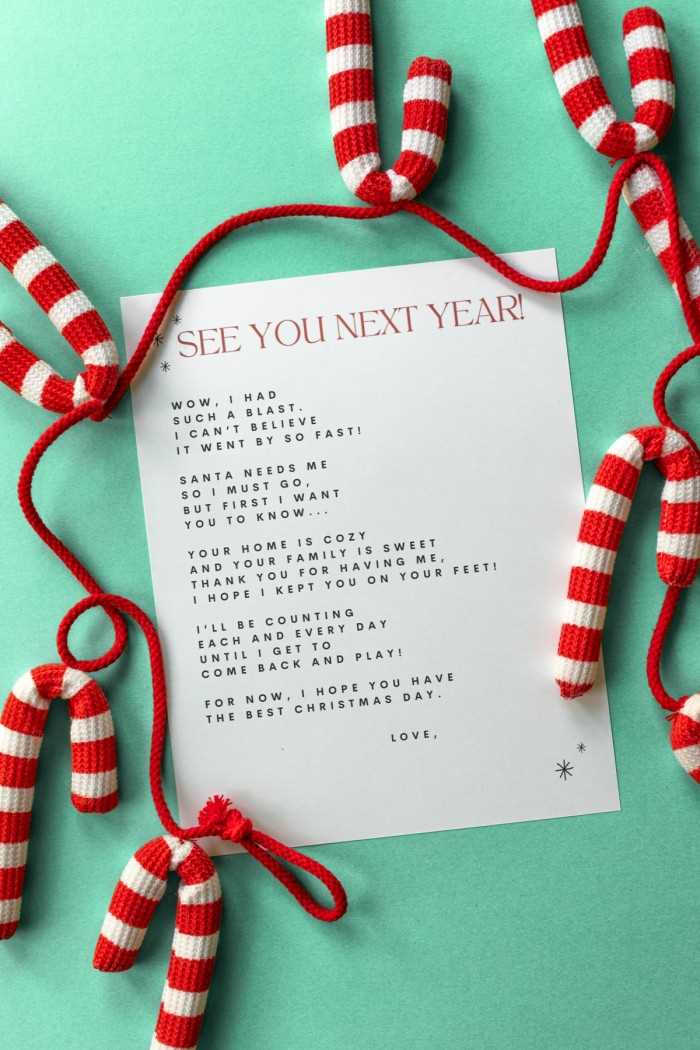 SEE YOU NEXT YEAR!
WOW, I HAD
SUCH A BLAST.
I CAN'T BELIEVE
IT WENT BY SO FAST!
SANTA NEEDS ME
SO I MUST GO,
BUT FIRST I WANT
YOU TO KNOW...
YOUR HOME IS COZY
AND YOUR FAMILY IS SWEET
THANK YOU FOR HAVING ME,
I HOPE I KEPT YOU ON YOUR FEET!
I'LL BE COUNTING
EACH AND EVERY DAY
UNTIL I GET TO
COME BACK AND PLAY!
FOR NOW, I HOPE YOU HAVE
THE BEST CHRISTMAS DAY.
LOVE,